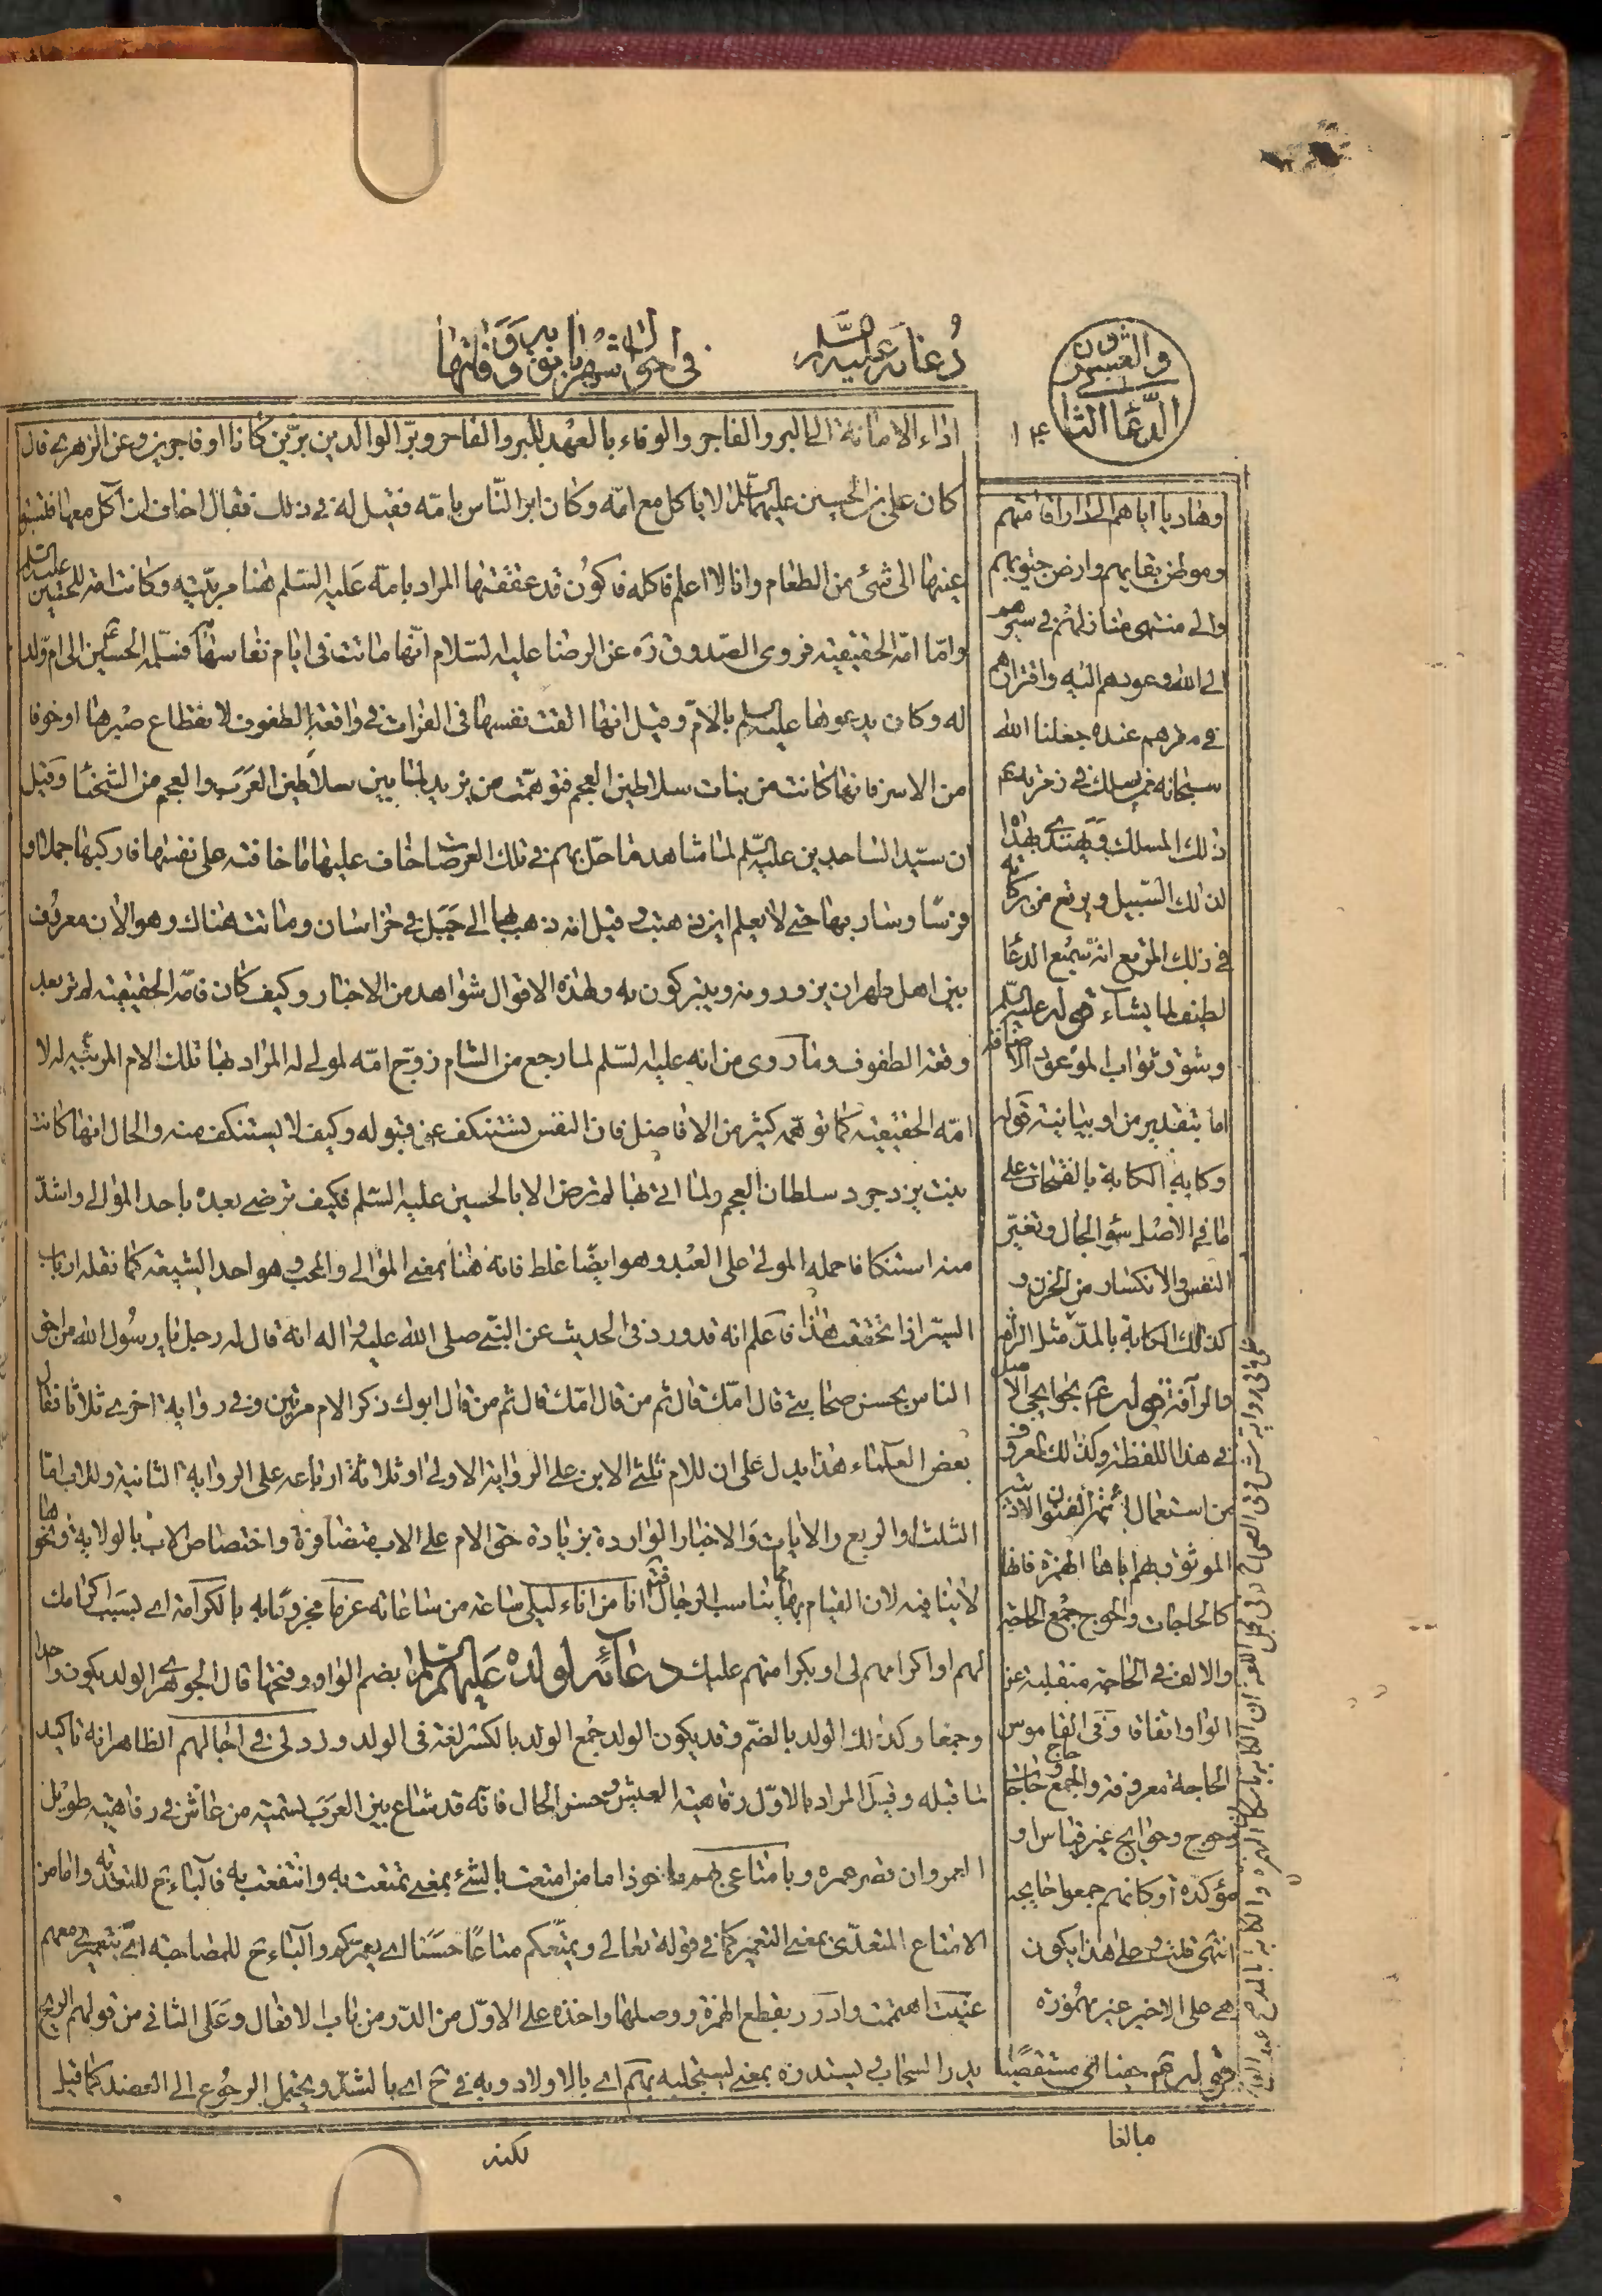 دعائه عليه السلام
في احوال شهربانو ووفاتها
الدعاء الثا
والعشرون
١٣٤
اداء الامانة الى البر والفاجر والوفاء بالعهد للبر والفاجر وبرّ الوالدين برّين كانا او فاجرين وعن الزهري قال
كان علي بن الحسين عليهما السلام لا ياكل مع امّه وكان ابر النّاس بامّه فقيل له في ذلك فقال اخاف ان آكل معها فتسبق
عينها الى شيء من الطعام وانا لا اعلم فاكله فاكون قد عققتها المراد بامّه عليه السّلم هنا مربّيته وكانت امة للحسين عليه السلم
وامّا امّه الحقيقيّة فروى الصّدوق ره عن الرضا عليه السّلام انّها ماتت في ايام نفاسها به فسلّمه الحسين ع الى امّ ولد
له وكان يدعوها عليه السلم بالامّ وقيل انها القت نفسها في الفرات في واقعة الطفوف لانقطاع صبرها او خوفا
من الاسر فانها كانت من بنات سلاطين العجم فتوهّمت من يزيد لما بين سلاطين العرب والعجم من الشحنا وقيل
ان سيّد الساجدين عليه السّلم لما شاهد ما حلّ بهم في تلك العرصات خاف عليها ما خافته على نفسها فاركبها جملا او
فرسًا وسار بها حتى لا يعلم اين ذهبت وقيل انه ذهب بها الى جبل في خراسان وماتت هناك وهو الان معروف
بين اهل طهران يزورونه ويتبركون به ولهذه الاقوال شواهد من الاخبار وكيف كان فامّه الحقيقية لم تر بعد
وقعة الطفوف وما روى من انه عليه السّلم لما رجع من الشام زوّج امّه لمولى له المراد بها تلك الام المربّية له لا
امّه الحقيقية كما توهّمه كثير من الافاضل فان النفس تستنكف عن قبوله وكيف لا يستنكف منه والحال انها كانت
بنت يزدجرد سلطان العجم ولما اتى بها لم ترض الا بالحسين عليه السّلم فكيف ترضى بعده باحد الموالي واشدّ
منه استنكافا حمله المولى على العبد وهو ايضًا غلط فانه هنا بمعنى الموالي والمحب وهو احد الشيعة كما نقله ارباب
السيّر اذا تحققت هذا فاعلم انه قد ورد في الحديث عن النبي صلى الله عليه واله انه قال له رجل يا رسول الله من احق
الناس بحسن صحابتي قال امّك قال ثم من قال امّك قال ثم من قال ابوك ذكر الام مرتين وفي رواية اخرى ثلاثا فقال
بعض العلماء هذا يدل على ان للام ثلثي الابن على الرواية الاولى او ثلاثة ارباعه على الرواية الثانية وللاب اما
الثلث او الربع والايات والاخبار الواردة بزيادة حق الام على الاب متضافرة واختصاص الاب بالولاية ونحوها
لا ينافيه لان القيام بها مما يناسب الرجال انا من اناء ليلي ساعة من ساعاته مجرورًا به بالكرامة اي بسبب اكرامك
لهم او اكرامهم لي او بكرامتهم عليك دعائه لولده عليهم السلم بضم الواو وفتحها قال الجوهري الولد يكون واحدا
وجمعا وكذلك الولد بالضمّ وقد يكون الولد جمع الولد بالكسر لغة في الولد وزد لي في اجالهم الظاهر انه تاكيد
لما قبله وقيل المراد بالاوّل رفاهية العيش وحسن الحال فانه قد شاع بين العرب تسمية من عاش في رفاهية طويل
العمر وان قصر عمره وبامتاعي بهم ماخوذ اما من امتعت بالشيء بمعنى تمتعت به وانتفعت به فالباء ح للتعدية واما من
الامتاع المتعدّي بمعنى التعمير كما في قوله تعالى ويمتّعكم متاعًا حسنا اي يعمركم والباء ح للمصاحبة اي معهم
عنيت اهتممت وادرر بقطع الهمزة ووصلها واخذه على الاوّل من الدّر من باب الافعال وعلى الثاني من قولهم الريح
يدر السحاب ويستدره بمعنى يستجلبه بهم اي بالاولاد وبه في ح اي بالشدّ ويحتمل الرجوع الى العضد كما قيل
لكنه
وهاديا اياهم الى دار اقامتهم
وموطن بقائهم وارض جنوبهم
والى منتهى منازلهم في سيرهم
الى الله وعودهم اليه واقترانهم
في مفرهم عنده جعلنا الله
سبحانه ممن يسلك في زمرتهم
ذلك المسلك ويهتدي بهداه
لذلك السّبيل ويرتع من بركاته
في ذلك المرتع انه سميع الدعا
لطيف لما يشاء قوله عليه السّلم
وشوق ثواب الموعود الاضافة
اما بتقدير من او بيانية قوله
وكابة الكابة بالفتحات على
ما في الاصل سؤ الحال وتغيّر
النفس والانكسار من الحزن و
كذلك الكابة بالمدّ مثل الرأفة
والرآفة قوله ع بحوايجي الاصل
في هذا اللفظة وكذلك المعروف
من استعمال
الموثوق بهم اباها الهمزة فانها
كالحاجات والحوج جمع الحاجة
والالف في الحاجة منقلبة عن
الواو اتفاقا وفي القاموس
الحاجة معروفة والجمع حاج وحاجات
وحوج وحوايج غير قياس او
مؤكدة او كانهم جمعوا حايجة
انتهى قلت وعلى هذا يكون
هي على الاخير غير مهموزة
قوله هم هناالى مستقصيا
مبالغا